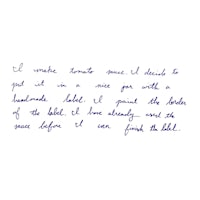 I make tomato sauce. I decide to
put it in a nice jar with a
handmade label. I paint the border
of the label. I have already used the
sauce before I can finish the label.